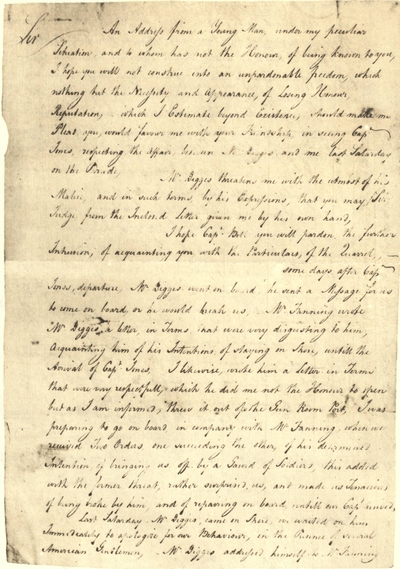 Sir
An Address from a Young Man, under my peculiar
Situation, and to whom has not the Honour, of being known to you,
I hope you will not construe into an unpardonable freedom, which
nothing but the Necessity and Appearance, of Losing Honour,
Reputation, which I Estimate beyond Existence, should make me
Plead, you would favour me with your Friendship in seeing Capt
Jones, respecting the affair between Mr Digges, and me last Saturday
on the Parade,
Mr Digges threatens me with the utmost of his
Malice, and in such terms, by his Expressions, that you may Sir
Judge from the Inclosed Letter given me by his own hand,
I hope Capt Bell you will pardon the further
Intrusion, of acquainting you with the Particulars, of the Quarrel,
some days after Capt
Jones, departure, Mr Digges went on board he sent a Message for us
to come on board, or he would break us, Mr Fanning wrote
Mr Digges, a letter, in Terms, that were very disgusting to him,
Acquainting him of his Intentions, of staying on Shore, untill the
Arrival of Capt Jones. I likewise, wrote him a letter in Terms
that were very respectfull, which he did me not the Honour to open
but as I am informed, threw it out of the Gun Room Port, I was
preparing to go on board in company with Mr Fanning, when we
received Two Orders, one succeeding the other, of his determined
Intention of bringing us off by a Guard of Soldiers, this added
with the former threat, rather surprised us, and made us Tenacious
of being broke by him and of repairing on board, untill our Capt arrived,
Last Saturday Mr Digges, came on Shore, we waited on him
Immediately to apologize for our Behaviour, in the Presence of several
American Gentlemen, Mr Digges addressed himself to Mr Fanning